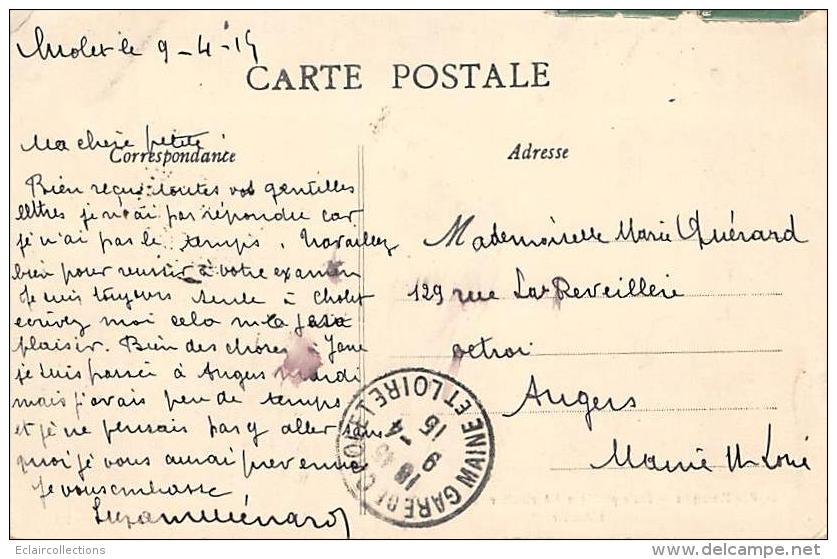 Cholet le 9-4-15
CARTE POSTALE
Ma chère petite
Correspondance
Bien reçu toutes vos gentilles
lettres je n'ai pas répondu car
je n'ai pas le temps. Travaillez
bien pour reussir à votre examen
Je suis toujours seule à Cholet
ecrivez moi cela me fera
plaisir. Bien des choses à Jane
je suis passée à Angers mardi
mais j'avais peu de temps
et je ne pensais pas y aller sans
quoi je vous aurai prevenue
Je vous embrasse
Suzanne Ménard
Adresse
Mademoiselle Marie Quérard
129 rue La Reveillère
octroi
Angers
Maine et Loire
GARE DE CHOLET MAINE ET LOIRE
18
9 - 4
15
Eclaircollections
delcampe.net